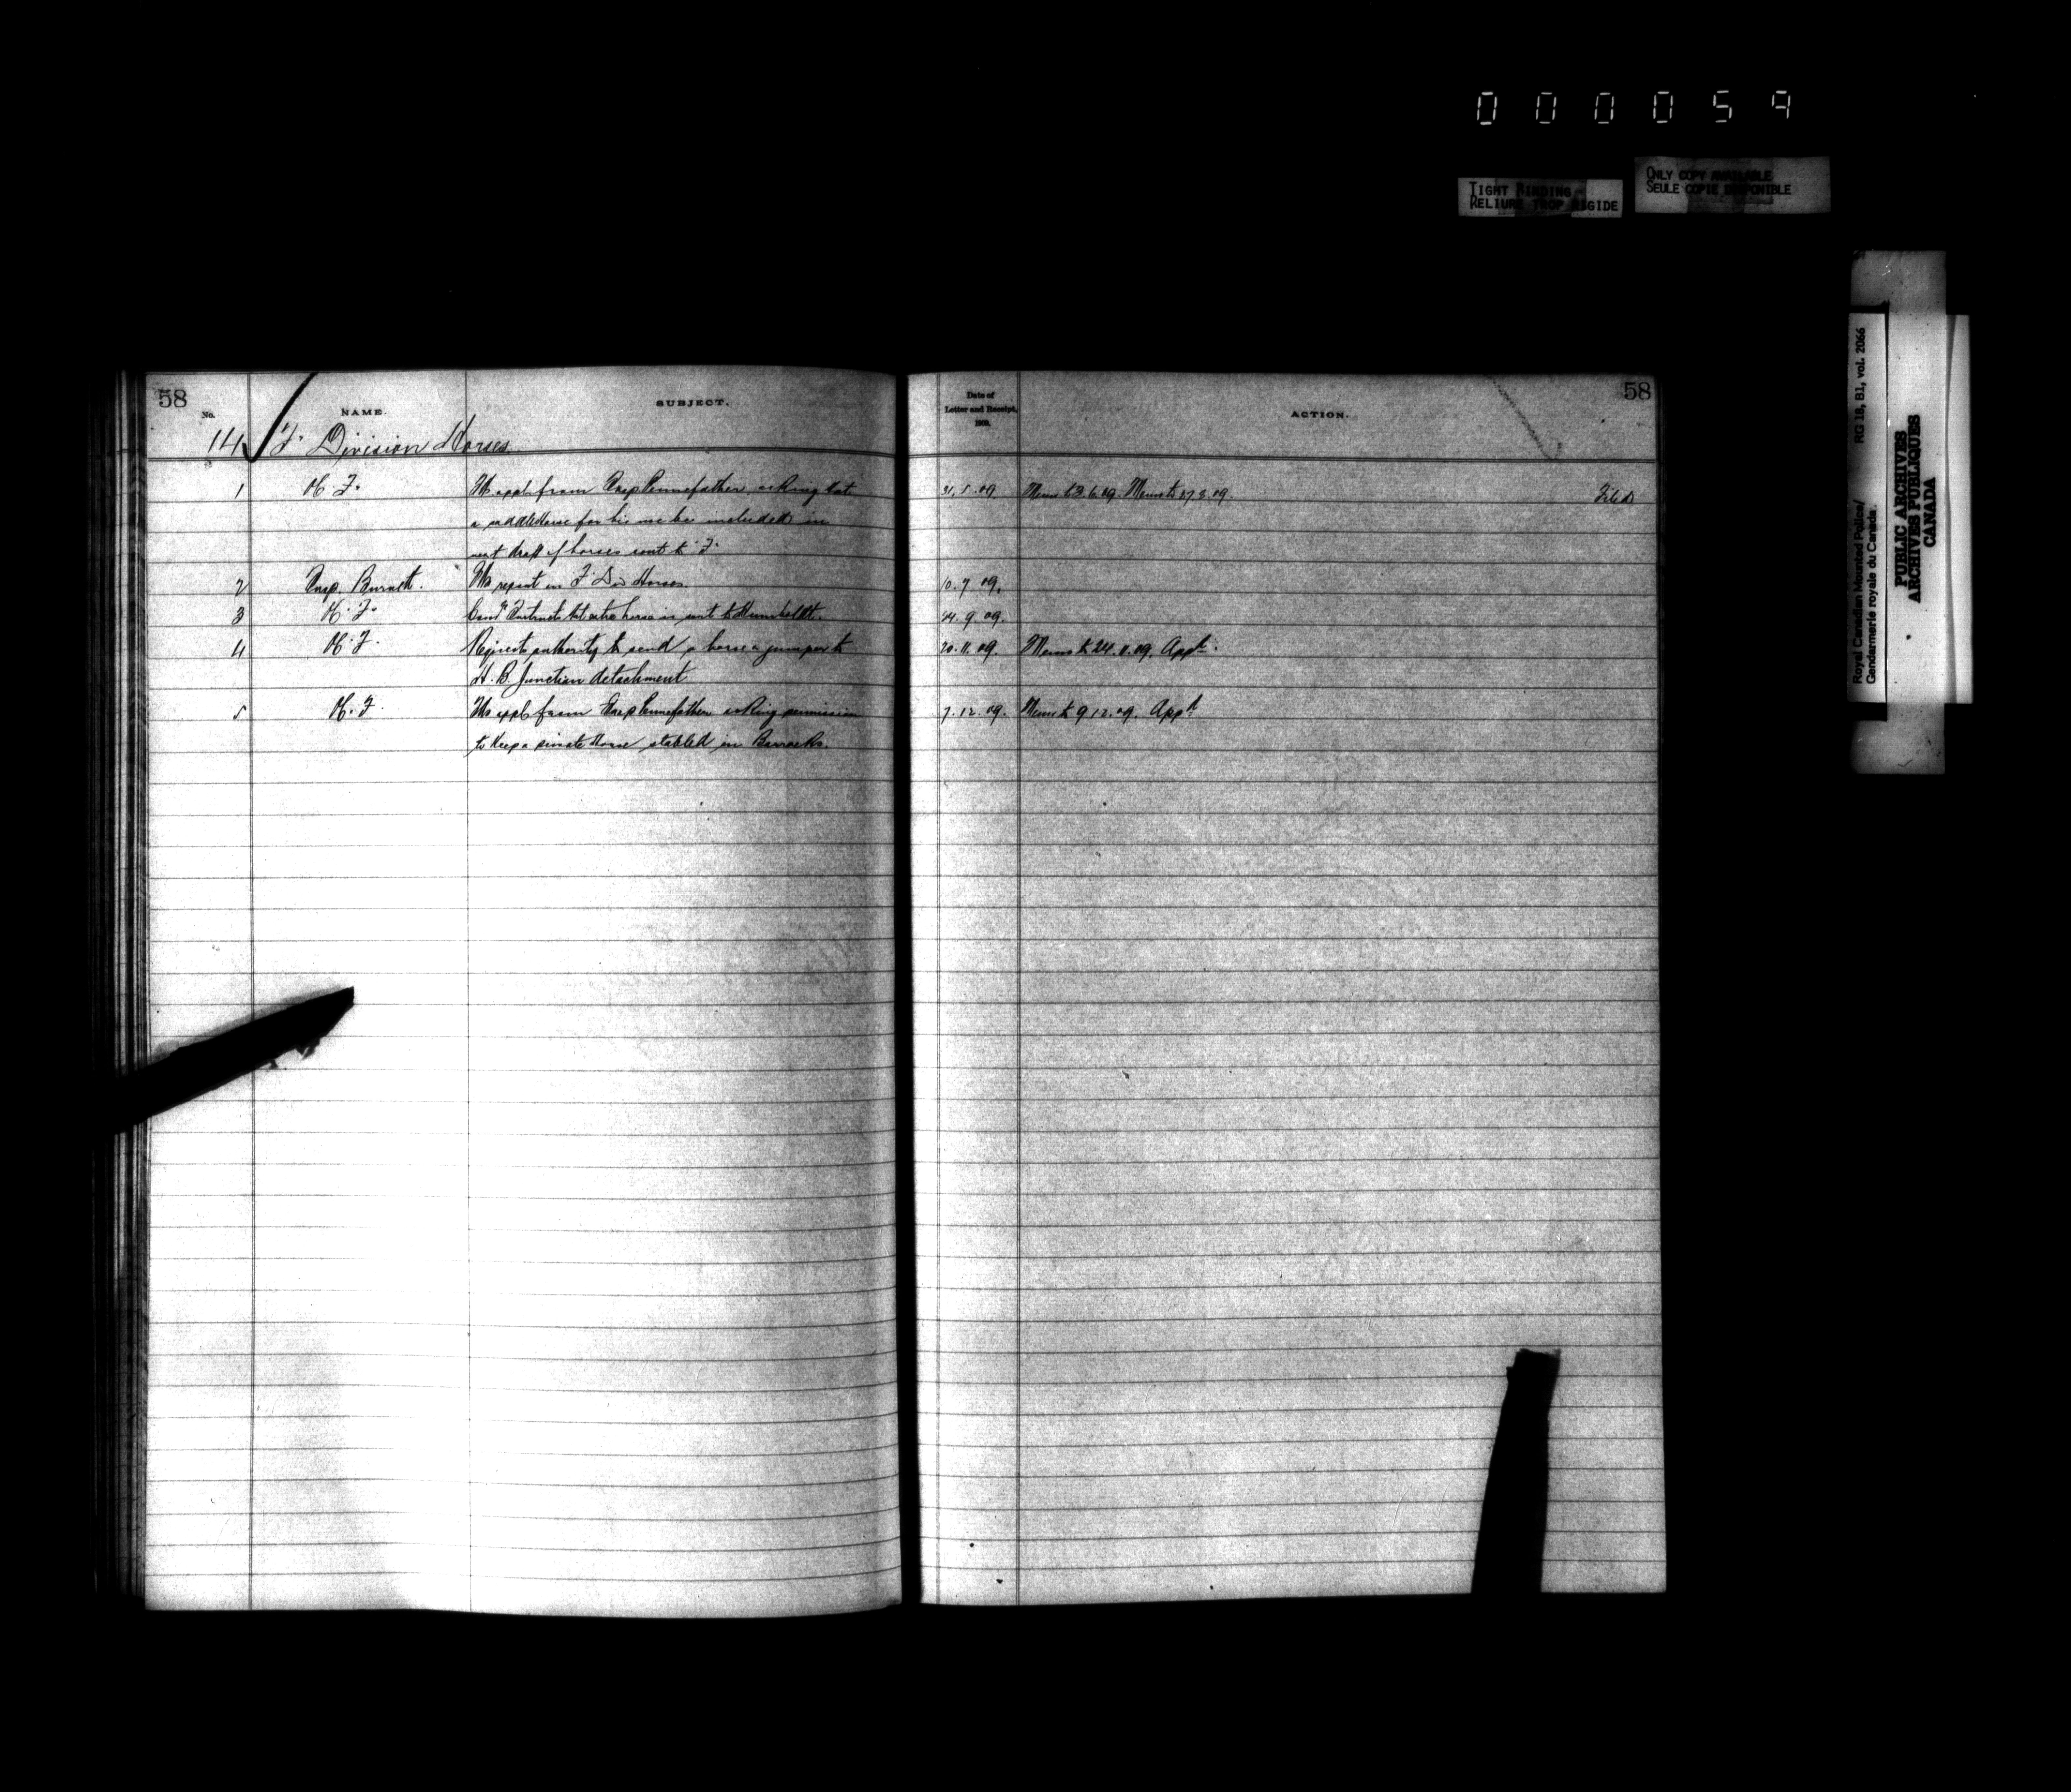 000059
TIGHT BINDING
RELIURE TROP RIGIDE
ONLY COPY AVAILABLE
SEULE COPIE DISPONIBLE
Royal Canadian Mounted Police/ RG 18, B1, vol. 2066
Gendarmerie royale du Canada
PUBLIC ARCHIVES
ARCHIVES PUBLIQUES
CANADA
58
No. NAME. SUBJECT.
14 "F" Division Horses
1 from Insp Pennefather asking that
a saddle Horse for his use be included in
next draft of horses sent to "F"
2 Insp. Burnett. report on "F" Div Horses
3 horse is sent to Humboldt.
4 Requests authority to send a horse & jumper to
H. B. Junction detachment
5 from Insp Pennefather asking permission
to keep a private Horse stabled in Barracks.
58
Date of
Letter and Receipt,
1909.
ACTION.
31.5.09 Memo to 3.6.09. Memo to Filed
10.7.09.
24.9.09.
20.11.09. Memo to 24.11.09. App
7.12.09. Memo to 9.12.09. App